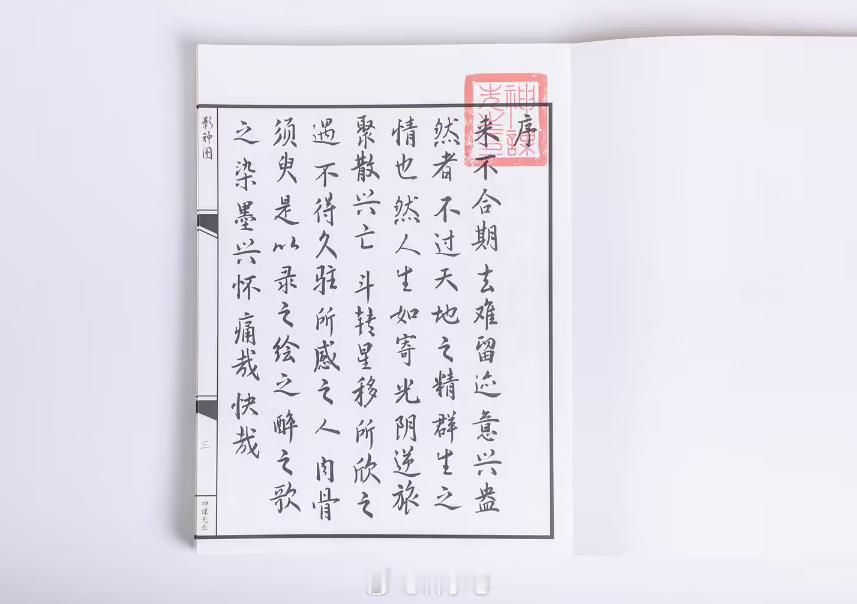 序
来不合期去难留迹意兴盎
然者不过天地之精群生之
情也然人生如寄光阴逆旅
聚散兴亡斗转星移所欣之
遇不得久驻所感之人肉骨
须臾是以录之绘之醉之歌
之染墨兴怀痛哉快哉
影神图
三
神谋先生
神谋先生